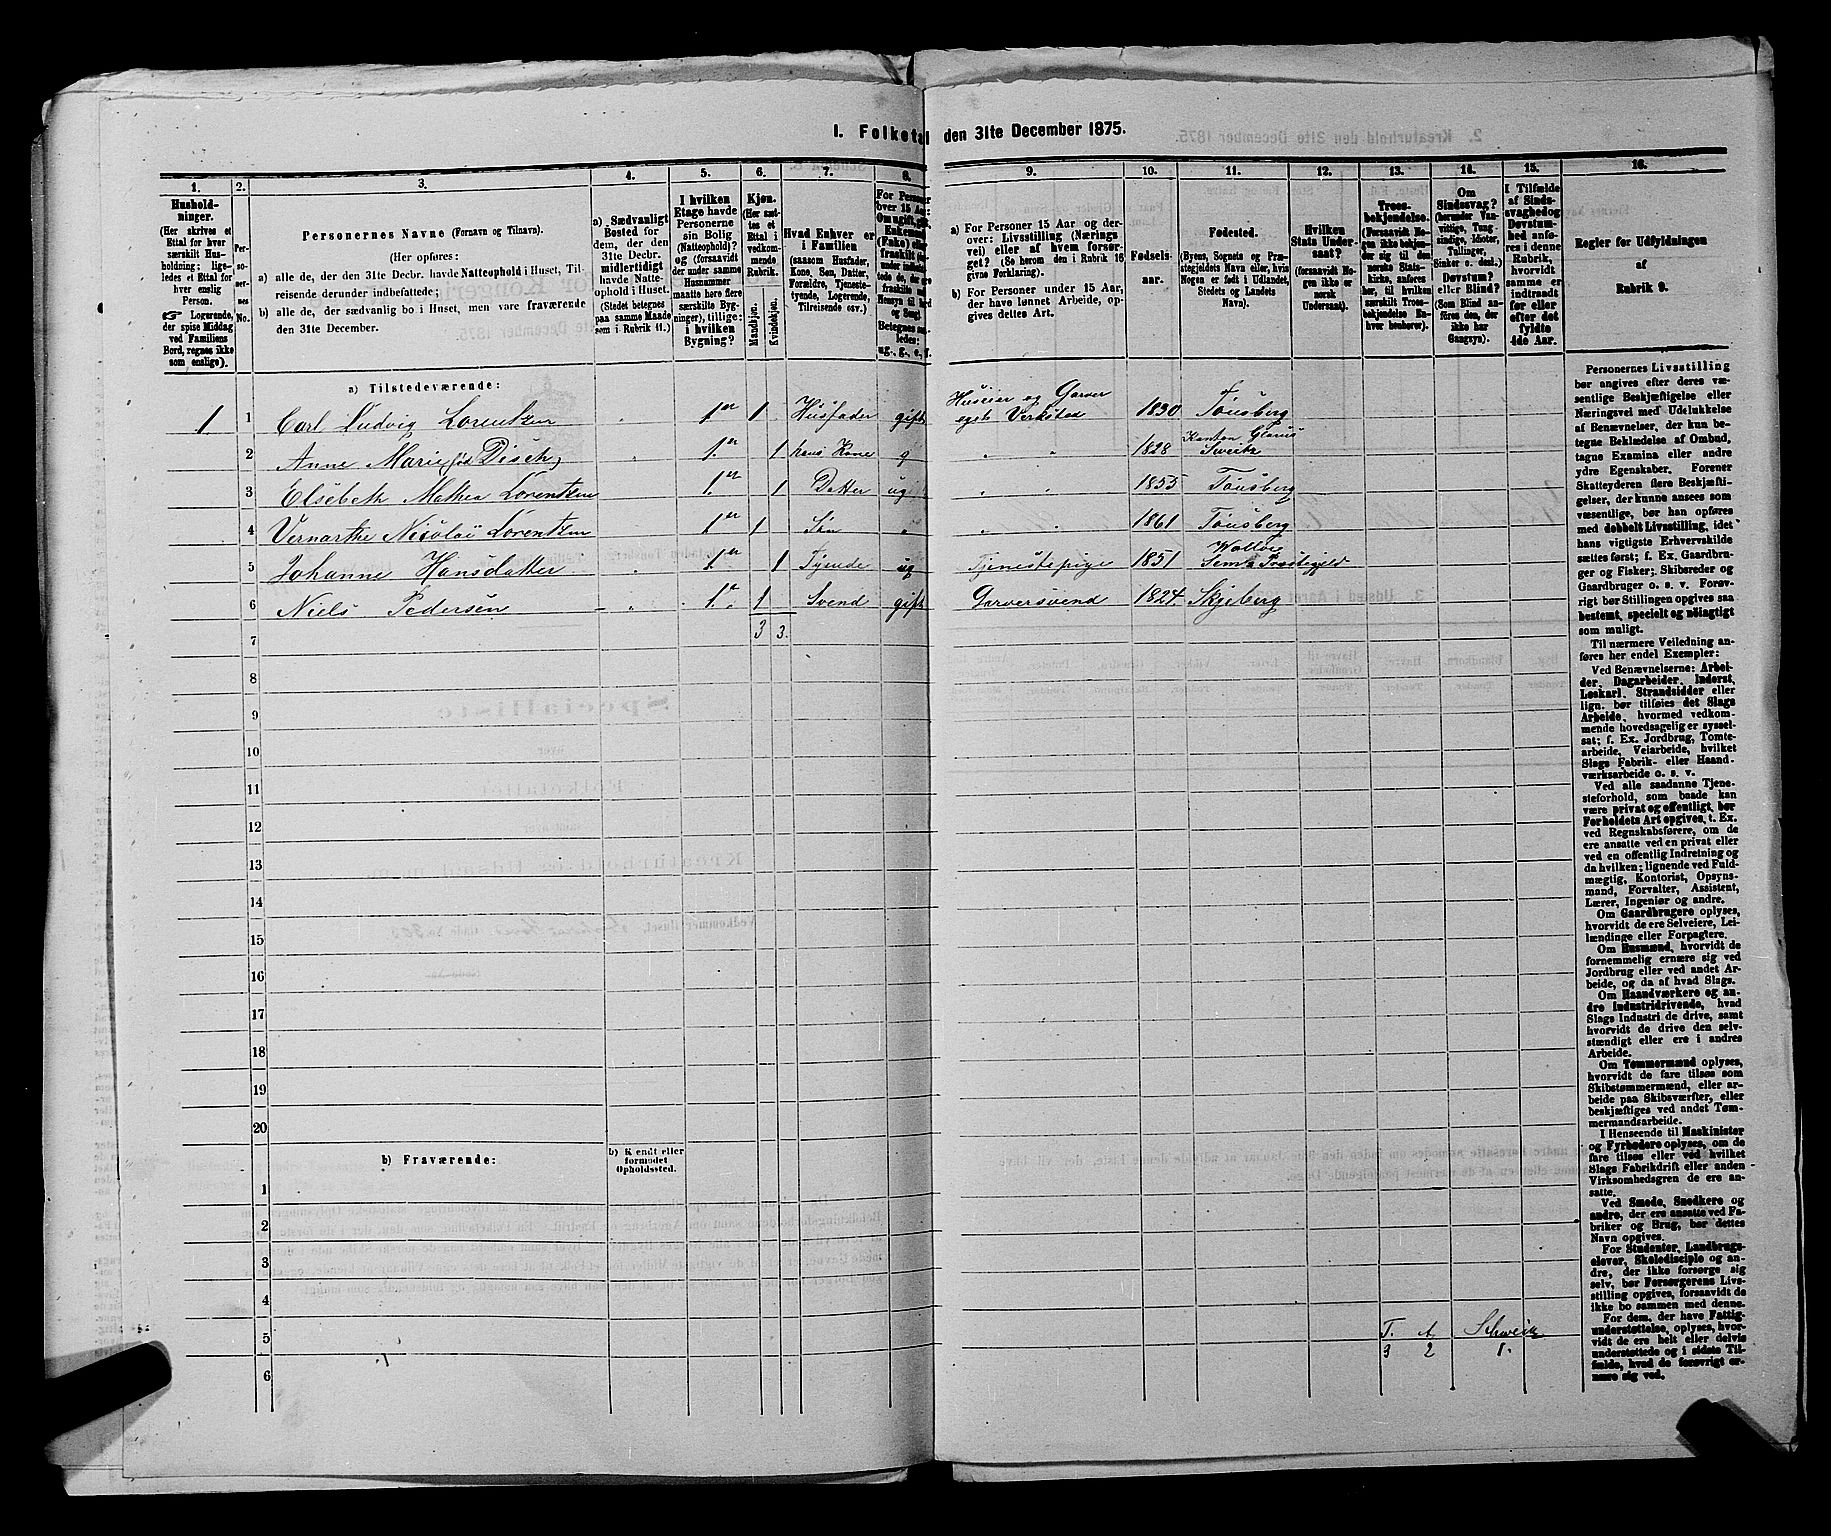 1. Folketal den 31te December 1875.
1.
2.
3.
4.
5.
6.
7.
8.
9.
10.
11.
12.
13.
14.
15.
16.
Hushold-
ninger.
(Her skrives et
Ettal for hver
særskilt Hus-
holdning; lige-
ledes et Ettal for
hver enslig
Person.
☞ Logerende,
der spise Middag
ved Familiens
Bord, regnes ikke
som enslige).
Per-
so-
ner-
nes
No.
Personernes Navne (Fornavn og Tilnavn).
(Her opføres:
a) alle de, der den 31te Decbr. havde Natteophold i Huset, Til-
reisende derunder indbefattede;
b) alle de, der sædvanlig bo i Huset, men vare fraværende
den 31te December.
a) Sædvanligt
Bosted for
dem, der den
31te Decbr.
midlertidigt
havde Natte-
ophold i Huset.
(Stedet betegnes
paa samme Maade
som i Rubrik 11.)
I hvilken
Etage havde
Personerne
sin Bolig
(Natteophold)?
og (forsaavidt
der under samme
Husnummer
maatte høre flere
særskilte Byg-
ninger), tillige:
i hvilken
Bygning?
Kjøn.
(Her sæt-
tes et
Ettal i
vedkom-
mende
Rubrik.
Mandkjøn.
Kvindekjøn.
Hvad Enhver er
i Familien
(saasom Husfader,
Kone, Søn, Datter,
Forældre, Tjeneste-
tyende, Logerende,
Tilreisende osv.)
a) For Personer 15 Aar og der-
over: Livsstilling (Nærings
vei) eller af hvem forsør-
get? (Se herom den i Rubrik 16
givne Forklaring).
b) For Personer under 15 Aar,
der have lønnet Arbeide, op-
gives dettes Art.
Fødsels-
aar.
Fødested.
(Byens, Sognets og Præ-
stegjeldets Navn eller, hvis
Nogen er født i Udlandet,
Stedets og Landets
Navn).
Hvilken
Stats Under-
saat?
(forsaavidt No-
gen ikke er
norsk
Undersaat).
Troes-
bekjendelse.
(Forsaavidt No-
gen ikke bekjen-
der sig til den
norske Stats-
kirke, anføres
her, til hvilken
særskilt Troes-
bekjendelse En-
hver henhører).
Om
Sindssvag?
(herunder Van-
vittige, Tung-
sindige, Idioter,
Tullinger,
Sinker o. desl.)
Døvstum?
eller Blind?
(Som Blind an-
føres den, der
ikke har
Gangsyn).
I Tilfælde
af Sinds-
svaghed og
Døvstum-
hed anfø-
res i denne
Rubrik,
hvorvidt
samme er
indtraadt
før eller
efter det
fyldte
4de Aar.
Regler for Udfyldningen
af
Rubrik 9.
a) Tilstedeværende:
1 1 Carl Ludvig Lorentzen 1. 1 Husfader gift Huseier og Garver eget Verksted 1830 Tønsberg
2 Anne Marie (fød Disch) 1. 1 hans Kone g 1828 Kanton Glarus Sweitz
3 Elsebeth Mathea Lorentzen 1. 1 Datter ug 1855 Tønsberg
4 Vernarthe Nicolai Lorentzen 1. 1 Søn " 1861 Tønsberg
5 Johanne Hansdatter 1. 1 Tyende ug Tjenestepige 1851 Semb Præstegjeld
6 Niels Pedersen 1. 1 Svend gift Garversvend 1824 Skjeberg
3 3.
7
8
9
10
11
12
13
14
15
16
17
18
19
20
b) Fraværende:
b) Kjendt eller
formodet
Opholdssted.
1
2
3
4
5
6
T. A Schweiz
3 2 1.
Personernes Livsstilling
bør angives efter deres væ-
sentlige Beskjæftigelse eller
Næringsvei med Udelukkelse
af Benævnelser, der kun be-
tegne Beklædelse af Ombud,
tagne Examina eller andre
ydre Egenskaber. Forener
Skatteyderen flere Beskjæfti-
gelser, der kunne ansees som
væsentlige, bør han opføres
med dobbelt Livsstilling, idet
hans vigtigste Erhvervskilde
sættes først; f. Ex. Gaardbru-
ger og Fisker; Skibsreder og
Gaardbruger o. s. v. Forøv-
rigt bør Stillingen opgives saa
bestemt, specielt og nøiagtigt
som muligt.
Til nærmere Veiledning an-
føres her endel Exempler:
Ved Benævnelserne: Arbei-
der, Dagarbeider, Inderst,
Løskarl, Strandsidder eller
lign. bør tilføies det Slags
Arbeide, hvormed vedkom-
mende hovedsagelig er syssel-
sat; f. Ex. Jordbrug, Tomte-
arbeide, Veiarbeide, hvilket
Slags Fabrik- eller Haand-
værksarbeide o. s. v.
Ved alle saadanne Tjene-
steforhold, som baade kan
være privat og offentligt, bør
Forholdets Art opgives, t. Ex.
ved Regnskabsførere, om de
ere ansatte ved en privat eller
ved en offentlig Indretning og
da hvilken; lignende ved Fuld-
mægtig, Kontorist, Opsyns-
mand, Forvalter, Assistent,
Lærer, Ingeniør og andre.
Om Gaardbrugere oplyses,
hvorvidt de ere Selveiere, Lei-
lændinge eller Forpagtere.
Om Husmænd, hvorvidt de
fornemmelig ernære sig ved
Jordbrug eller ved andet Ar-
beide, og da af hvad Slags.
Om Haandværkere og an-
dre Industridrivende, hvad
Slags Industri de drive, samt
hvorvidt de drive den selv-
stændigt eller ere i andres
Arbeide.
Om Tømmermænd oplyses,
hvorvidt de fare tilsøs som
Skibstømmermænd, eller ar-
beide paa Skibsværfter, eller
beskjæftiges ved andet Tøm-
mermandsarbeide.
I Henseende til Maskinister
og Fyrbødere oplyses, om de
fare tilsøs eller ved hvilket
Slags Fabrikdrift eller anden
Virksomhedsgren de ere an-
satte.
Ved Smede, Snedkere og
andre, der ere ansatte ved Fa-
briker og Brug, bør dettes
Navn opgives.
For Studenter, Landbrugs-
elever, Skoledisciple og an-
dre, der ikke forsørge sig
selv, bør Forsørgerens Livs-
stilling opgives, forsaavidt de
ikke bo sammen med denne.
For dem, der have Fattig-
understøttelse, oplyses, hvor-
vidt de ere helt eller delvis
understøttede og i sidste Til-
fælde, hvad de forøvrigt er-
nære sig ved.